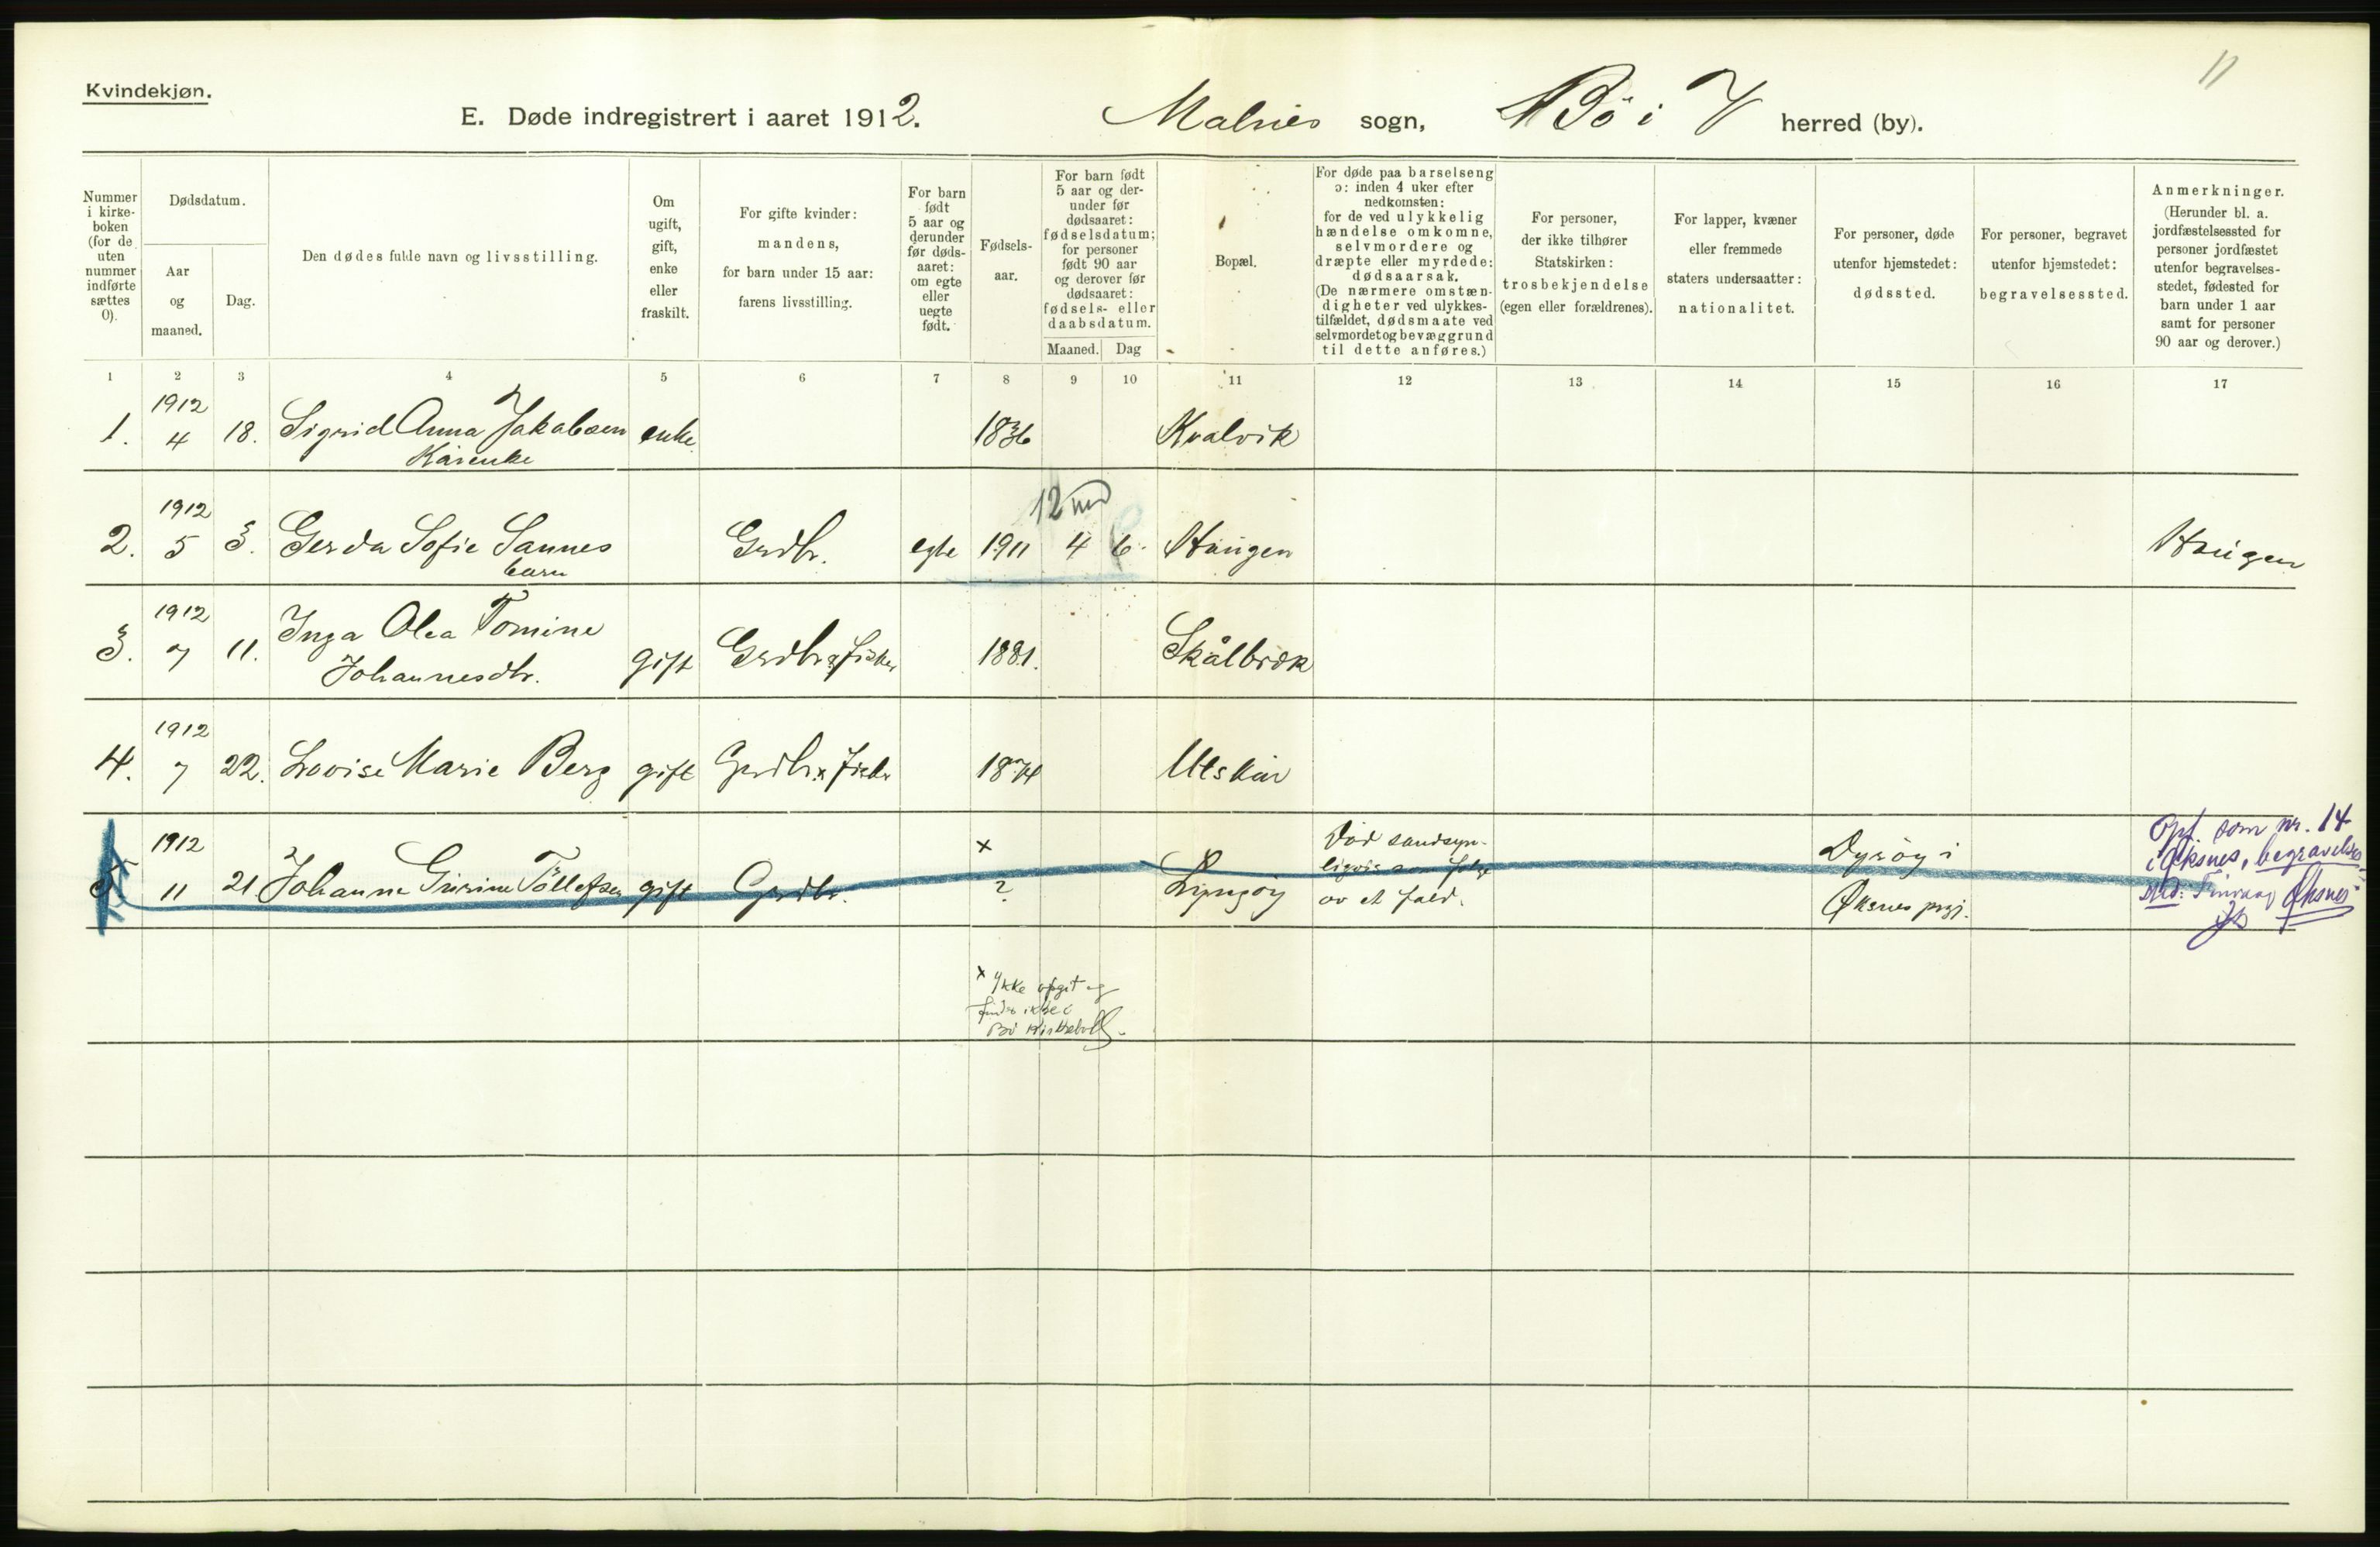 11
Kvindekjøn.
E. Døde indregistrert i aaret 1912. Malnes sogn, Bö i V herred (by).
Nummer i kirke- boken (for de uten nummer indførte sættes 0).
Dødsdatum.
Aar og maaned.
Dag.
Den dødes fulde navn og livsstilling.
Om ugift, gift, enke eller fraskilt.
For gifte kvinder: mandens, for barn under 15 aar: farens livsstilling.
For barn født 5 aar og derunder før døds- aaret: om egte eller uegte født.
Fødsels- aar.
For barn født 5 aar og der- under før dødsaaret: fødselsdatum; for personer født 90 aar og derover før dødsaaret: fødsels- eller daabsdatum.
Maaned. Dag
Bopæl.
For døde paa barselseng ɔ: inden 4 uker efter nedkomsten: for de ved ulykkelig hændelse omkomne, selvmordere og dræpte eller myrdede: dødsaarsak. (De nærmere omstæn- digheter ved ulykkes- tilfældet, dødsmaate ved selvmordet og bevæggrund til dette anføres.)
For personer, der ikke tilhører Statskirken: trosbekjendelse (egen eller forældrenes).
For lapper, kvæner eller fremmede staters undersaatter: nationalitet.
For personer, døde utenfor hjemstedet: dødssted.
For personer, begravet utenfor hjemstedet: begravelsessted.
Anmerkninger. (Herunder bl. a. jordfæstelsessted for personer jordfæstet utenfor begravelses- stedet, fødested for barn under 1 aar samt for personer 90 aar og derover.)
1 2 3 4 5 6 7 8 9 10 11 12 13 14 15 16 17
1912
1. 4 18. Sigrid Anna Jakobsen enke 1836 Kvalvik
Kårenke
1912 12 md
2. 5 3. Gerda Sofie Sannes Grdbr. egte 1911 4 6. Haugen Haugen
barn
1912
3. 7 11. Inga Olea Tomine
Johannesdtr. gift Grdbr & fisker 1881. Skålbrek
1912
4. 7 22. Lovise Marie Berg gift Grdbr. & fisker 1874 Utskår
1912 x
5 11 21. Johanne Gurine Tollefsen gift Grdbr. ? Lyngöy
Död sandsyn-
ligvis som fölge
av et fald.
Dyröy i
Øksnes prgj.
Opf. som nr. 14
i Øksnes, begravelses
sted: Tinvaag Øksnes
x Ykke opgit og
findes ikke i
Bö kirkebok.